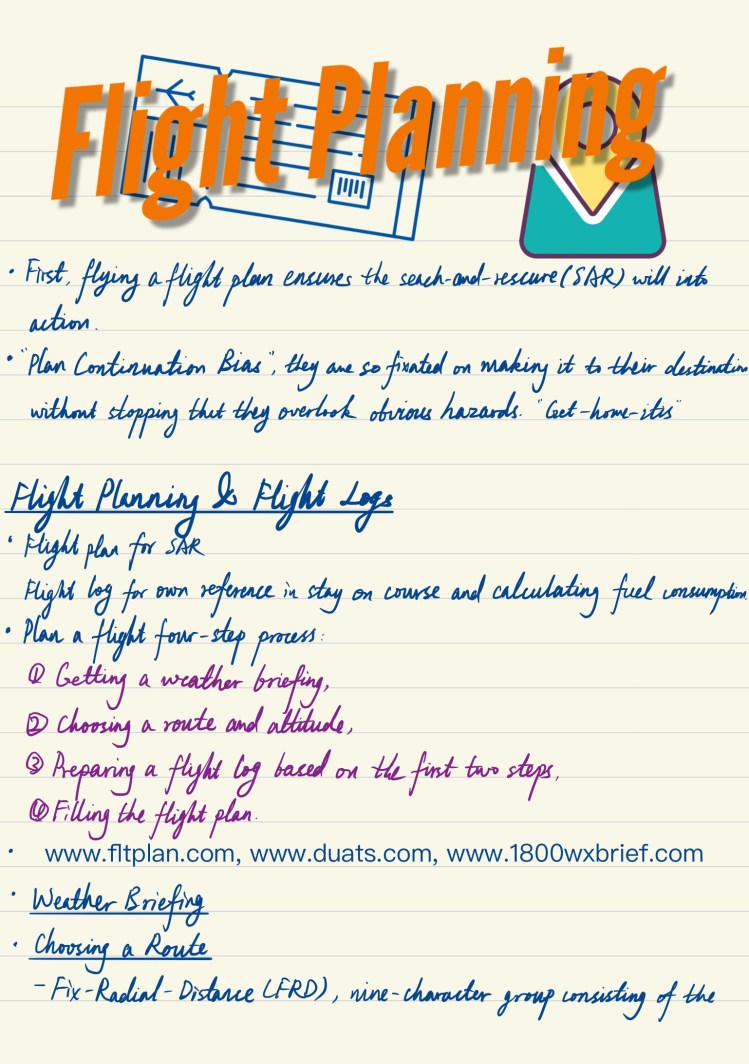 Flight Planning
· First, flying a flight plan ensures the seach-and-rescure (SAR) will into
action.
· "Plan Continuation Bias", they are so fixated on making it to their destination
without stopping that they overlook obvious hazards. "Get-home-itis"
Flight Planning & Flight Logs
· Flight plan for SAR
Flight log for own reference in stay on course and calculating fuel consumption
· Plan a flight four-step process:
① Getting a weather briefing,
② Choosing a route and altitude,
③ Preparing a flight log based on the first two steps,
④ Filling the flight plan.
· www.fltplan.com, www.duats.com, www.1800wxbrief.com
· Weather Briefing
· Choosing a Route
- Fix-Radial-Distance (FRD), nine-character group consisting of the